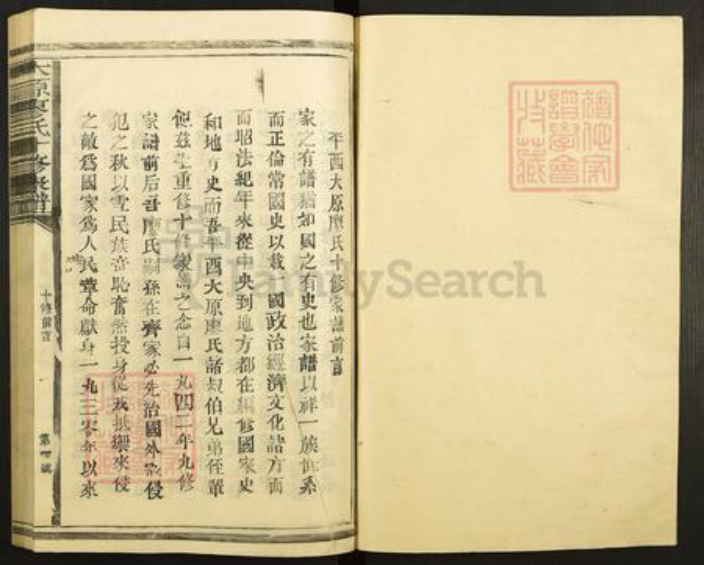 平酉大原廖氏十修家譜前言
家之有譜猶如國之有史也家譜以祥一族世系
而正倫常國史以載一國政治經濟文化諸方面
而昭法紀年來從中央到地方都在編修國家史
和地方史而吾平酉大原廖氏諸叔伯兄弟侄輩
便茲生重修十修家譜之念自一九四二年九修
家譜前后吾廖氏嗣孫在齊家必先治國外敵侵
犯之秋以雪民族奇恥奮然投身從戎抵禦來侵
之敵爲國家爲人民革命獻身一九三零年以來
十修前言
第 號
大原廖氏十修家譜
譜學會
收藏
FamilySearch